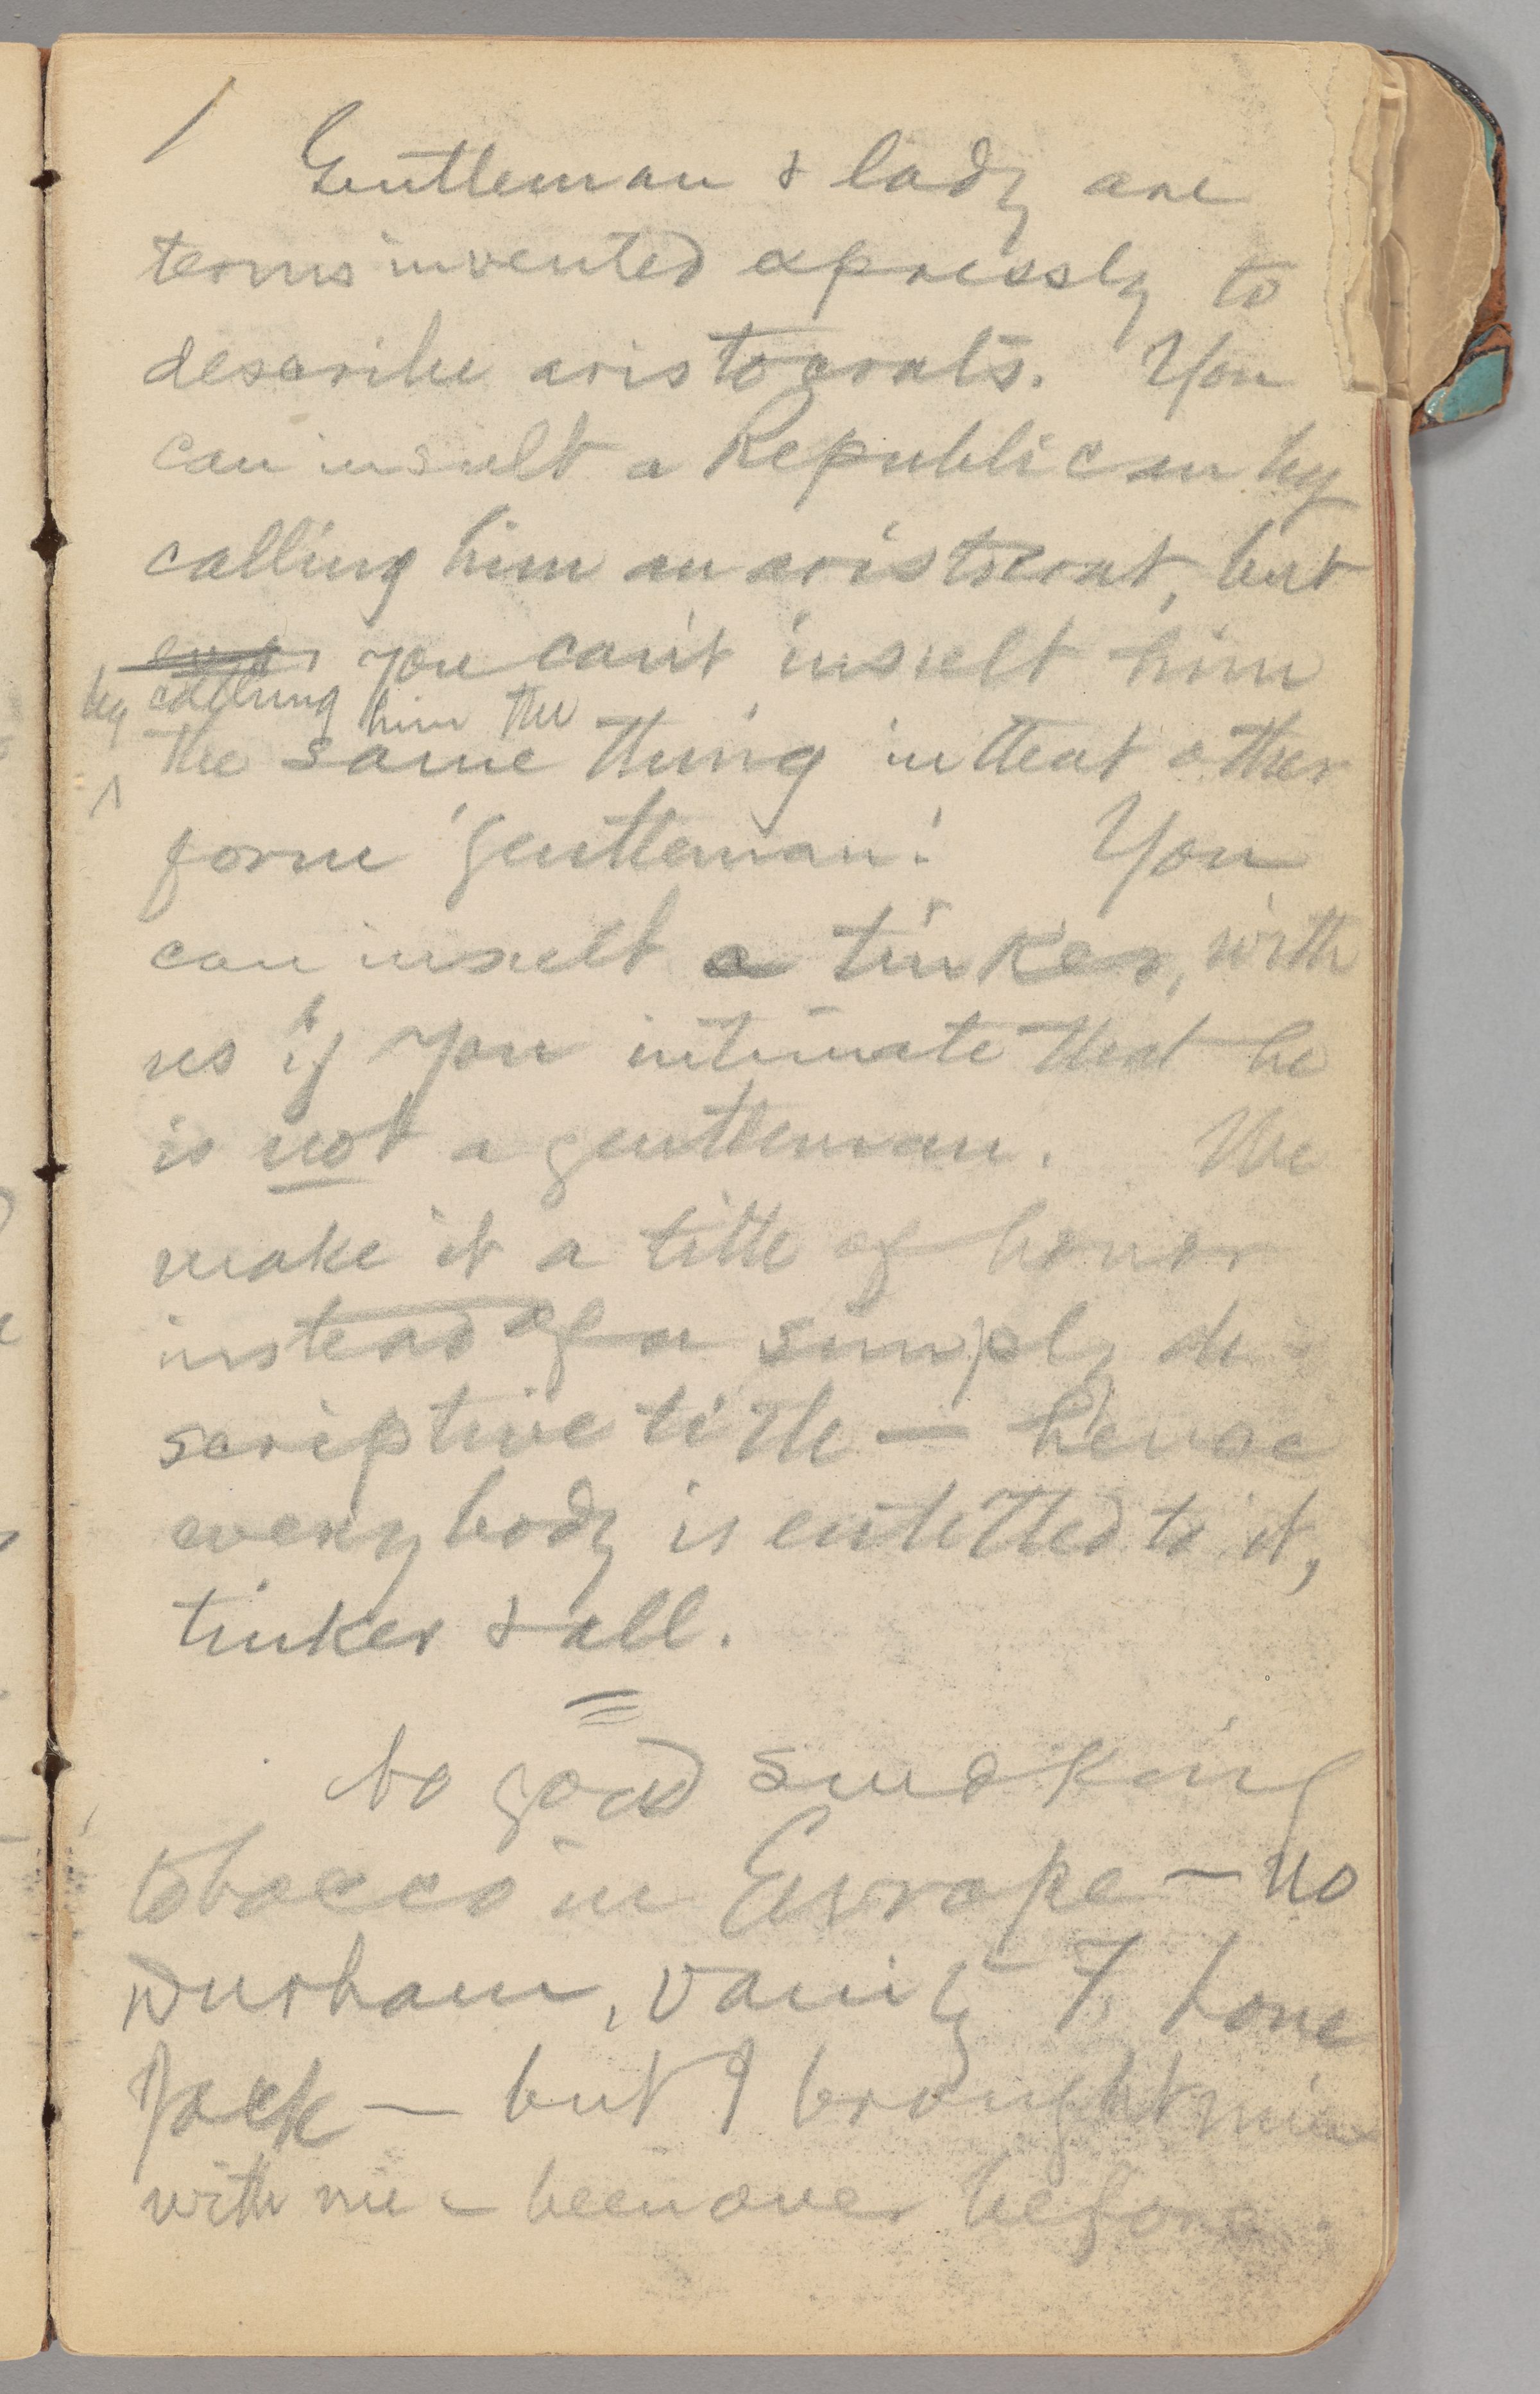 Gentleman & lady are
terms invented expressly to
describe aristocrats. You
can insult a Republican by
calling him an aristocrat, but
you can't insult him
by calling him the
the same thing in that other
form 'gentleman.' You
can insult a tinker, with
us if you intimate that he
is not a gentleman. We
make it a title of honor
instead of a simply de-
scriptive title — hence
everybody is entitled to it,
tinker & all.
No good smoking
tobacco in Europe — no
Durham, Vanity F, Lone
Jack — but I brought mine
with me — been over before.